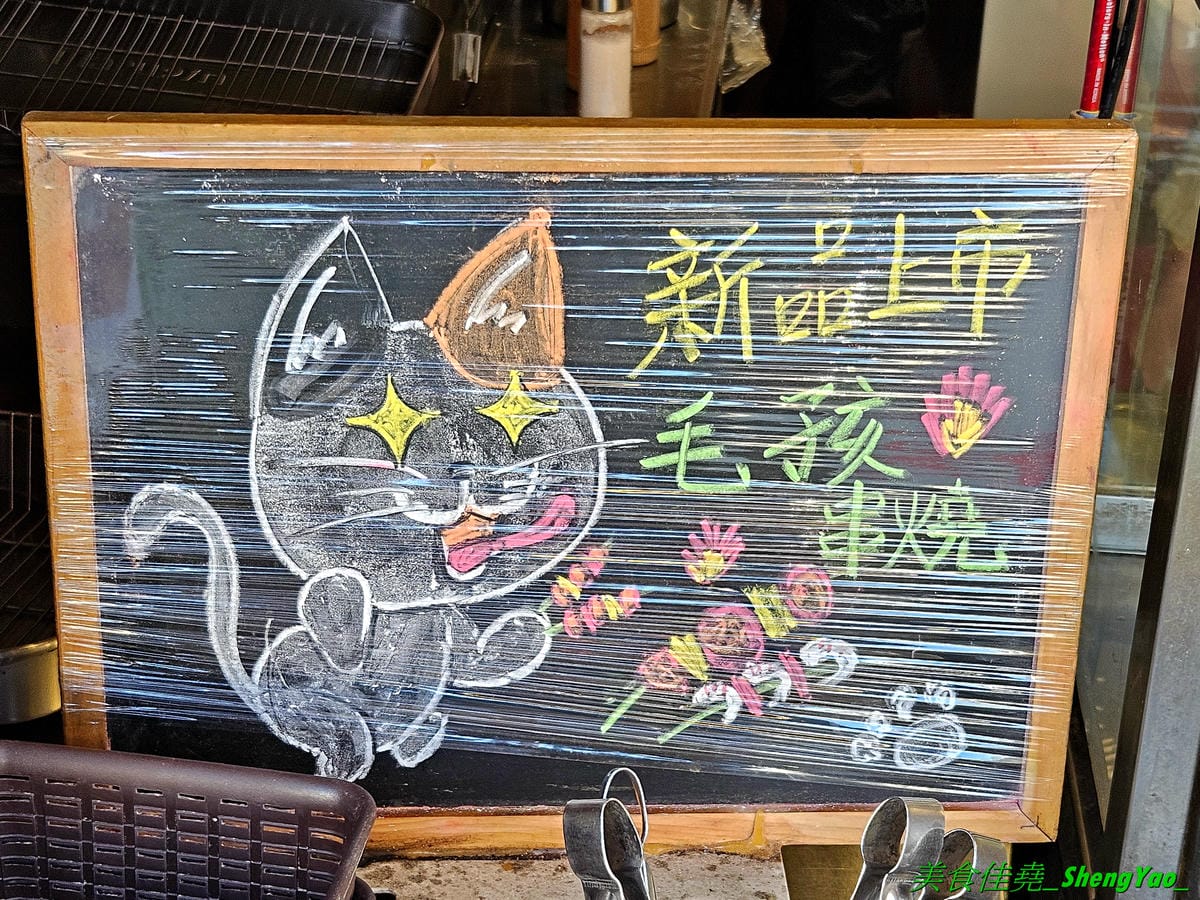 新品上市
毛孩
串燒
美食佳堯_ShengYao_